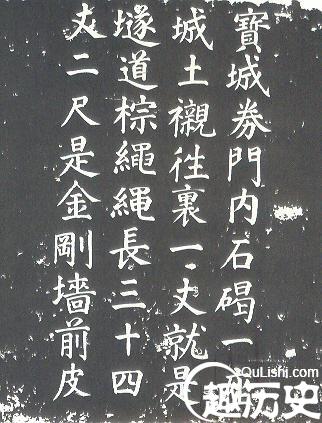 寶城券門内石碣一
城土襯徃裏一丈就是
隧道棕繩繩長三十四
丈二尺是金剛墻前皮
QuLishi.com
趣历史